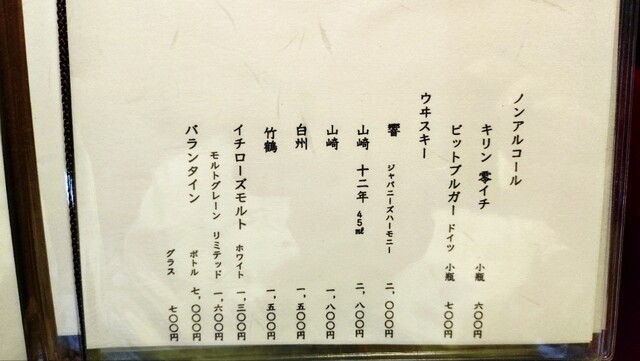 ノンアルコール
キリン 零イチ 小瓶 六〇〇円
ビットブルガー ドイツ 小瓶 七〇〇円
ウヰスキー
響 ジャパニーズハーモニー 二、〇〇〇円
山崎 十二年 45㎖ 二、八〇〇円
山崎 一、八〇〇円
白州 一、五〇〇円
竹鶴 一、五〇〇円
イチローズモルト ホワイト 一、三〇〇円
モルトグレーン リミテッド 一、六〇〇円
バランタイン ボトル 七、〇〇〇円
グラス 七〇〇円